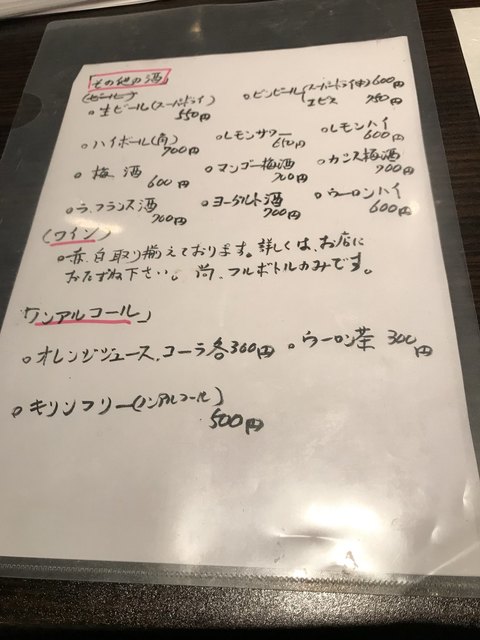 「その他の酒」
(ビール)
○生ビール(スーパードライ) 550円
○ビンビール(スーパードライ(中) 600円
エビス 750円
○ハイボール(角) 700円
○レモンサワー 650円
○レモンハイ 600円
○梅酒 600円
○マンゴー梅酒 700円
○カシス梅酒 700円
○ラ・フランス酒 700円
○ヨーグルト酒 700円
○ウーロンハイ 600円
(ワイン)
○赤、白取り揃えております。詳しくは、お店に
おたずね下さい。尚、フルボトルのみです。
「ノンアルコール」
○オレンジジュース、コーラ各300円
○ウーロン茶 300円
○キリンフリー(ノンアルコール)
500円